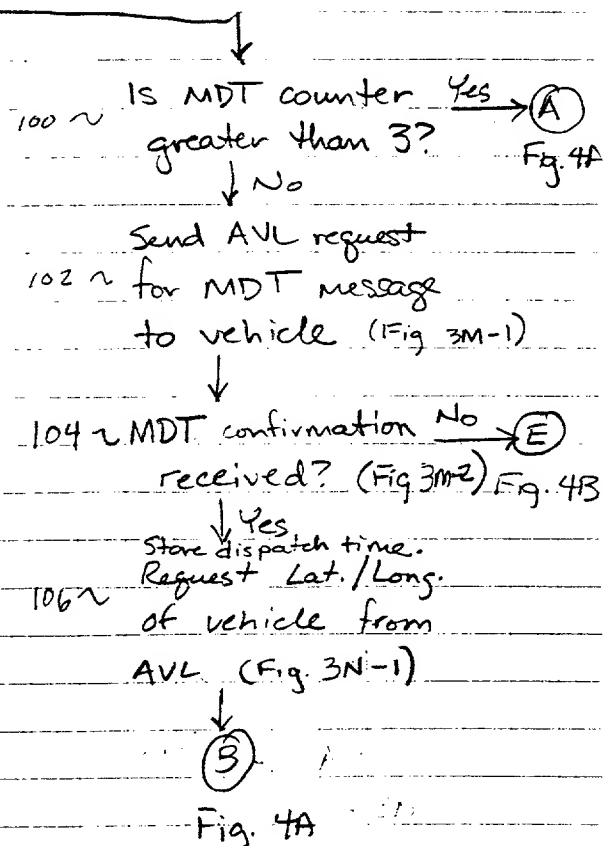 Is MDT counter Yes A
100 ~ greater than 3? Fig. 4A
No
Send AVL request
102 ~ for MDT message
to vehicle (Fig 3M-1)
104 ~ MDT confirmation No E
received? (Fig 3M-2) Fig. 4B
Yes
Store dispatch time.
106 ~ Request Lat./Long.
of vehicle from
AVL (Fig. 3N-1)
B
Fig. 4A